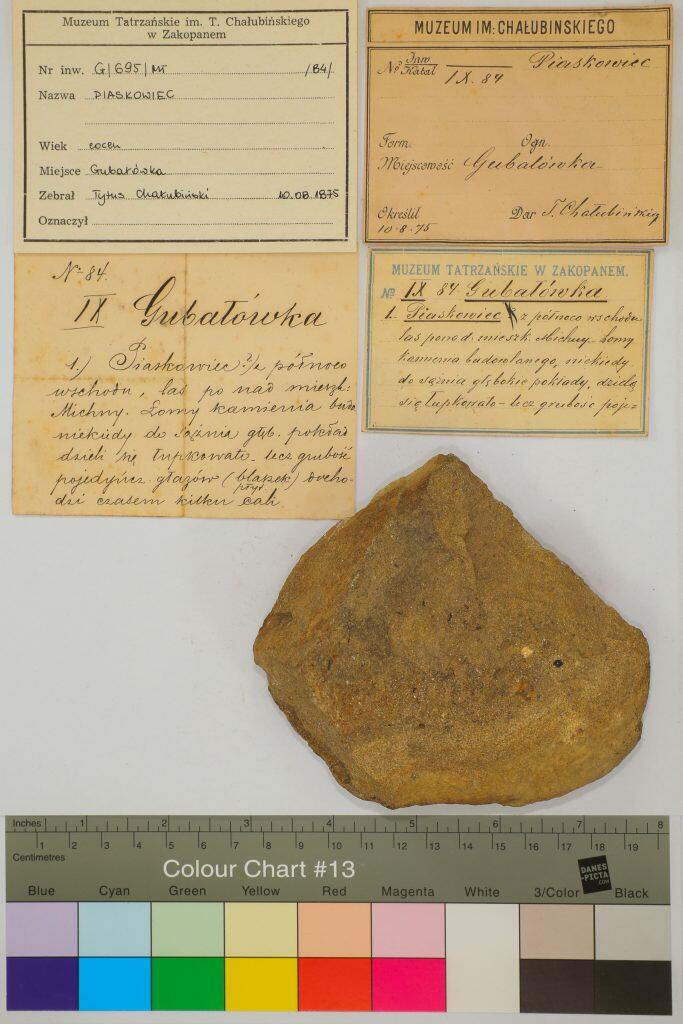 Muzeum Tatrzańskie im. T. Chałubińskiego
w Zakopanem
Nr inw. G/695/MT /84/
Nazwa PIASKOWIEC
Wiek eocen
Miejsce Gubałówka
Zebrał Tytus Chałubiński 10.08.1875
Oznaczył
MUZEUM IM: CHAŁUBIŃSKIEGO
№ Inw/Katal IX. 84 Piaskowiec
Form. Ogn.
Miejscowość Gubałówka
Określił Dar T. Chałubińskiy
10-8-75
№ 84.
IX Gubałówka
1.) Piaskowiec z północo
wschodu, las po nad mieszk:
Michny. Łomy kamienia budo
niekiedy do sążnia głęb. pokład
dzieli się łupkowato - lecz grubość
pojedyńcz. głazów (blaszek) docho-
płyt
dzi czasem kilku cali
MUZEUM TATRZAŃSKIE W ZAKOPANEM.
№ IX 84 Gubałówka
1. Piaskowiec z północo wschodu
las ponad mieszk. Michny - Łomy
kamienia budowlanego, niekiedy
do sążnia głębokie pokłady, dzielą
się łupkowato - lecz grubość poje=
Inches 1 2 3 4 5 6 7 8
1 2 3 4 5 6 7 8 9 10 11 12 13 14 15 16 17 18 19
Centimetres
Colour Chart #13
DANES
-PICTA
.COM
Blue Cyan Green Yellow Red Magenta White 3/Color Black